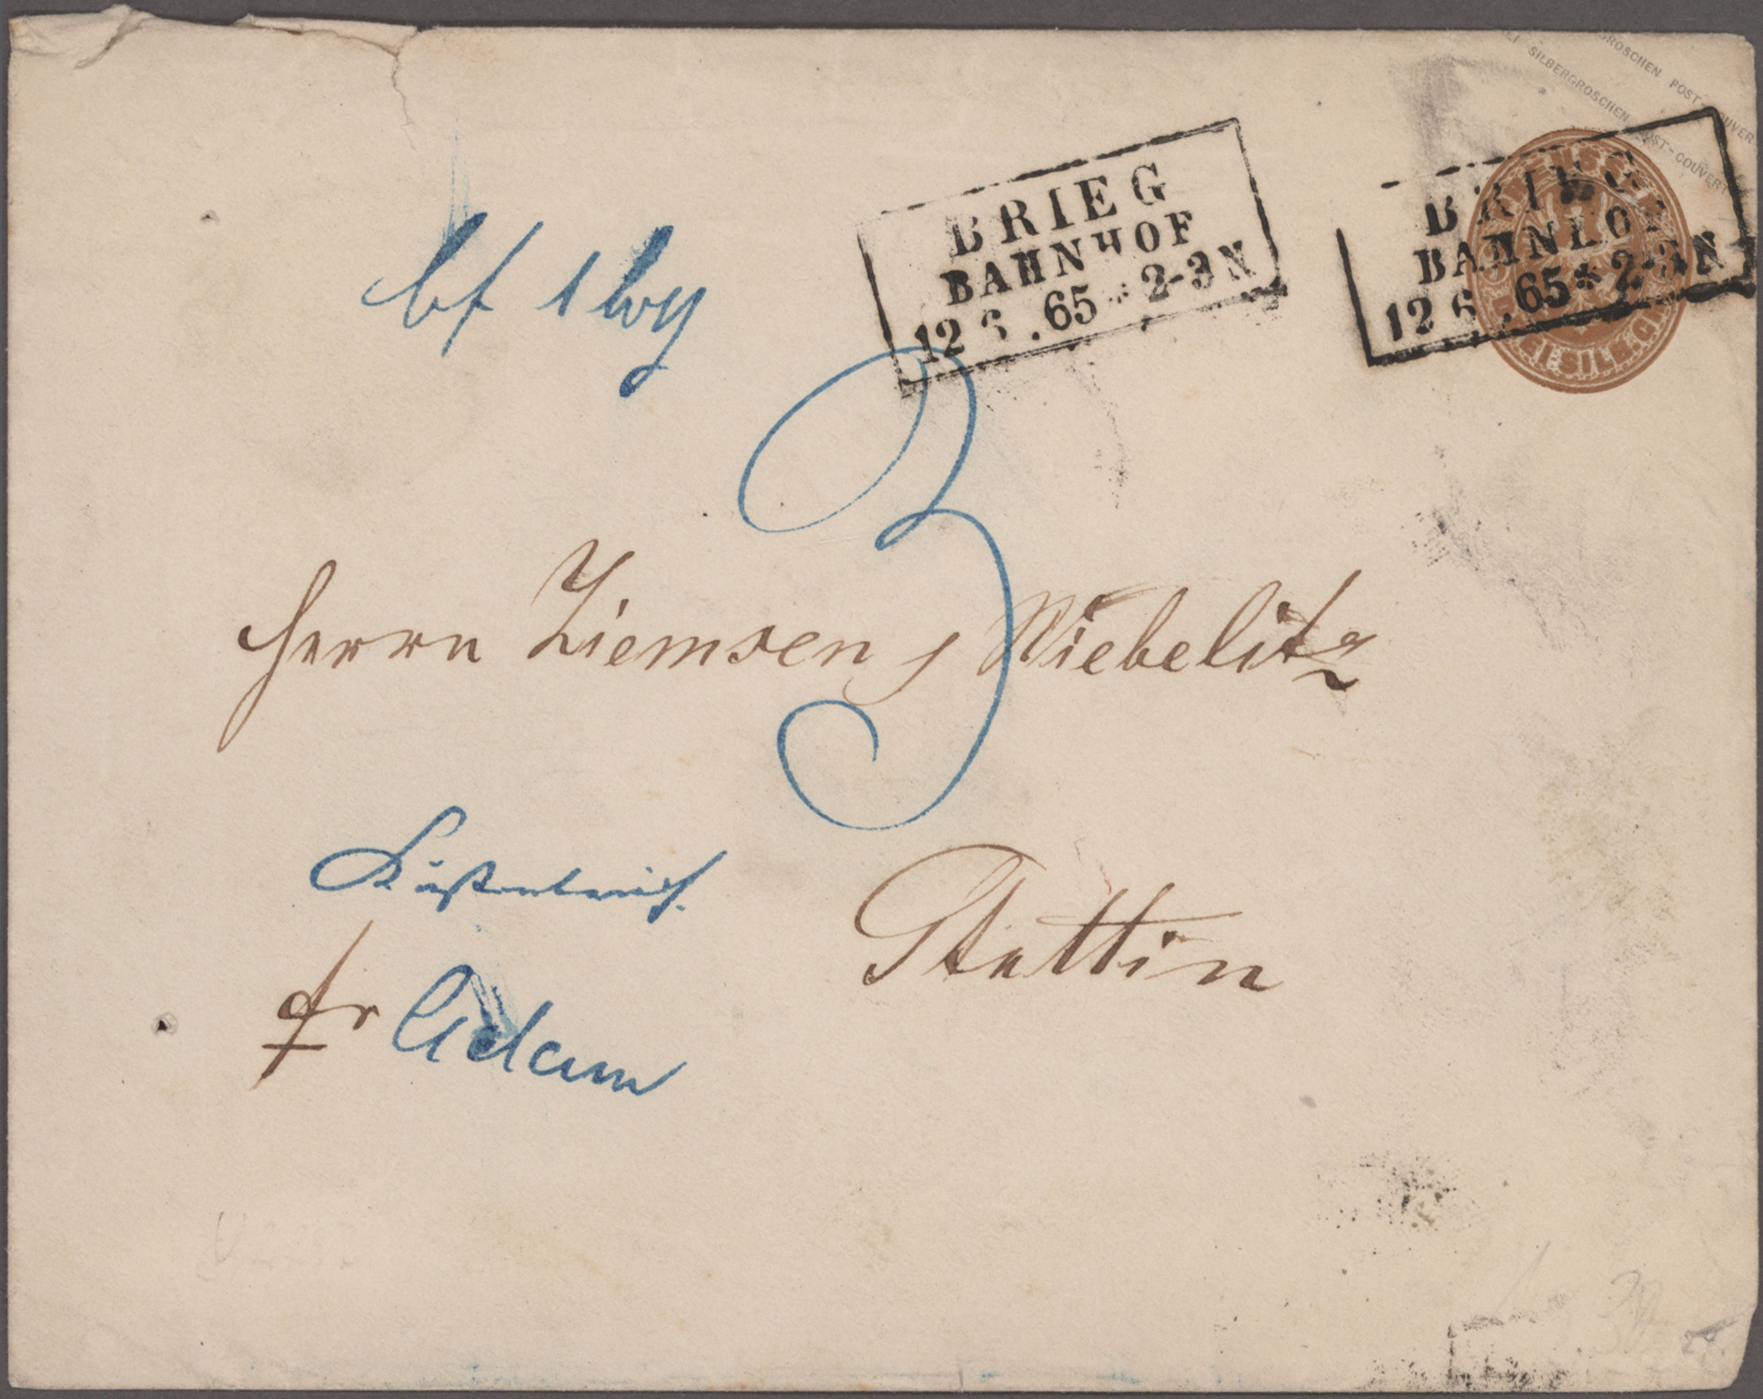 SILBERGROSCHEN POST-COUVERT
GROSCHEN POST-COUVERT
BRIEG
BAHNHOF
12 6 . 65 * 2-3 N
BRIEG
BAHNHOF
12 6 . 65 * 2-3 N
3
Herrn Ziemsen, Wiebelitz
Kastenbrief.
Stettin
fr